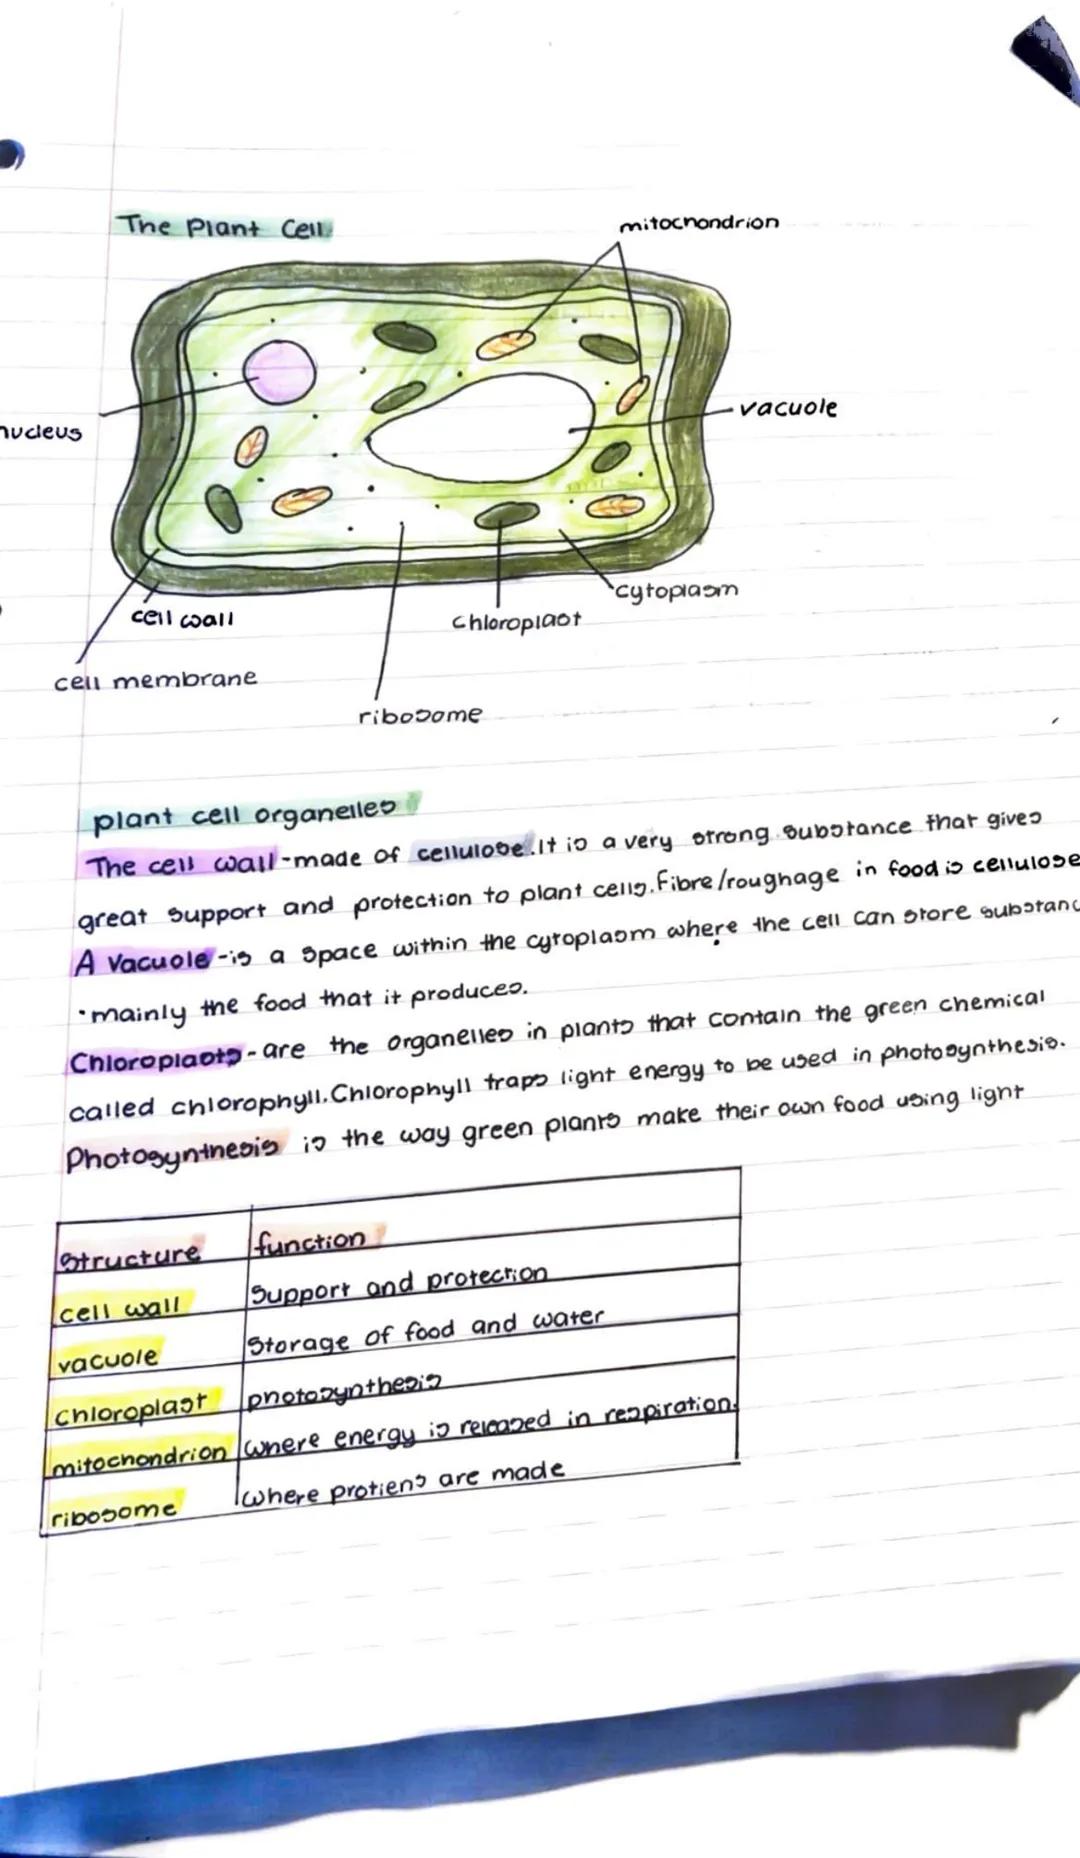 The Plant Cell.
mitochondrion
vacuole
nucleus
cytoplasm
cell wall
chloroplast
cell membrane
ribosome
plant cell organelles
The cell wall-made of cellulose.It is a very strong substance that gives
great support and protection to plant cells.Fibre/roughage in food is cellulose
A Vacuole-is a space within the cytoplasm where the cell can store
·mainly the food that it produces.
Chloroplasts-are the organelles in plants that contain the green chemical
called chlorophyll.Chlorophyll traps light energy to be used in photosynthesis.
Photosynthesis is the way green plants make their own food using light
Structure function
cell wall Support and protection
vacuole Storage of food and water
chloroplast photosynthesis
mitochondrion where energy is released in respiration.
ribosome where protiens are made